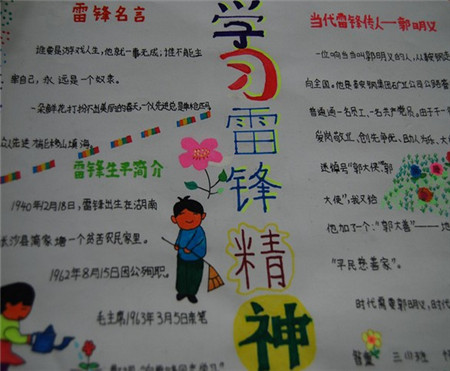 雷锋名言
谁要是游戏人生,他就一事无成;谁不能主
宰自己,永远是一个奴隶。
一朵鲜花打扮不出美丽的春天,一个人先进总是单枪匹马
众人先进 才能移山填海
雷锋生平简介
1940年12月18日,雷锋出生在湖南
长沙县简家塘一个贫苦农民家里。
1962年8月15日因公殉职。
毛主席1963年3月5日亲笔
学习雷锋精神
当代雷锋传人——郭明义
一位响当当叫郭明义的人,从鞍钢走
向全国。他是鞍钢集团矿业公司
普通通一名员工、一名共产党员。
爱岗敬业、创先争优、助人为乐
送绰号"郭大侠"郭
大侠",我又给
他加了个:"郭大善"——地
"平民慈善家"。
时代需要郭明义,时代
三(1)班